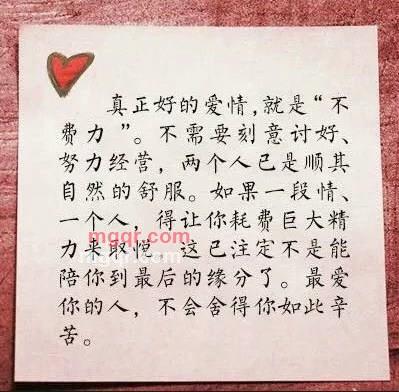 真正好的爱情,就是“不
费力”。不需要刻意讨好、
努力经营,两个人已是顺其
自然的舒服。如果一段情、
一个人,得让你耗费巨大精
力来取悦,这已注定不是能
陪你到最后的缘分了。最爱
你的人,不会舍得你如此辛
苦。
mgqr.com
mgqr.com